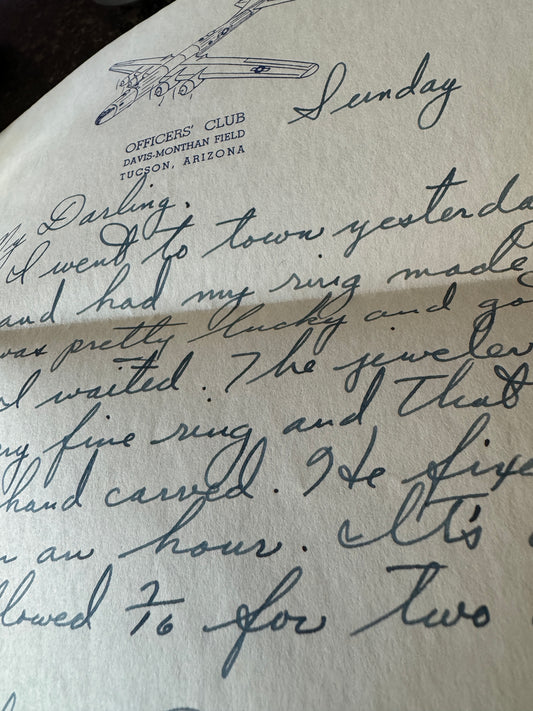 OFFICERS' CLUB
DAVIS-MONTHAN FIELD
TUCSON, ARIZONA
Sunday
My Darling.
I went to town yesterda
and had my ring made
was pretty lucky and go
I waited. The jeweler
my fine ring and that
hand carved. He fixe
an hour. It's
lowed 7/16 for two